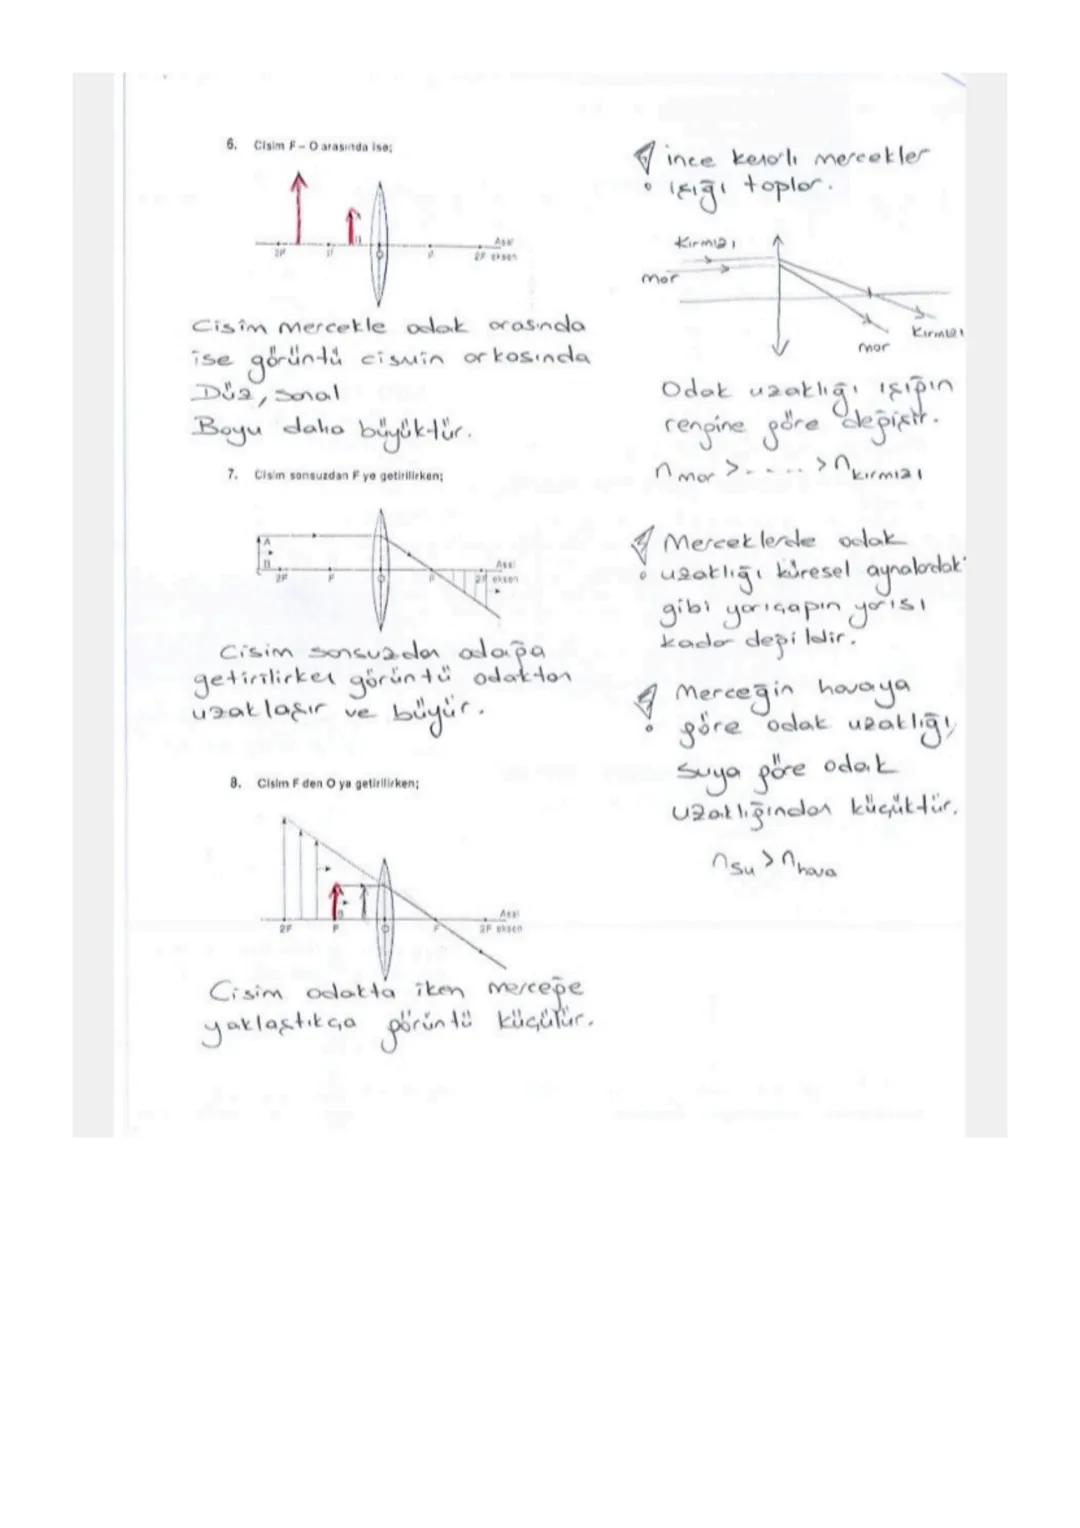 6. Cisim F – O arasında ise;
2F
F
O
F
2F
Asal
eksen
Cisim Mercekle odak arasında
ise görüntü cismin arkasında
Düz, sanal
Boyu daha büyüktür.
7. Cisim sonsuzdan F ye getirilirken;
A
B
2F
F
O
F
2F
Asal
eksen
Cisim sonsuzdan odağa
getirilirken görüntü odaktan
uzaklaşır ve büyür.
8. Cisim F den O ya getirilirken;
2F
F
O
F
2F
Asal
eksen
Cisim odakta iken merceğe
yaklaştıkça görüntü küçülür.
ince kenarlı mercekler
ışığı toplar.
Kırmızı
mor
Kırmızı
mor
Odak uzaklığı ışığın
rengine göre değişir.
n mor > . . . . > n kırmızı
Merceklerde odak
uzaklığı küresel aynalardaki
gibi yarıçapın yarısı
kadar değildir.
Merceğin havaya
göre odak uzaklığı,
suya göre odak
uzaklığından küçüktür.
n su > n hava